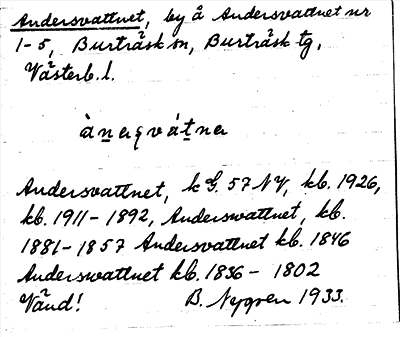 Andersvattnet, by å Andersvattnet nr
1-5, Burträsk sn, Burträsk tg,
Västerb. l.
ànersvátner
Andersvattnet, k G. 57 NV, kb. 1926,
kb. 1911-1892, Andersvattnet, kb.
1881-1857 Andersvattnet kb. 1846
Anderswattnet kb. 1836-1802
Vänd! B. Nygren 1933.